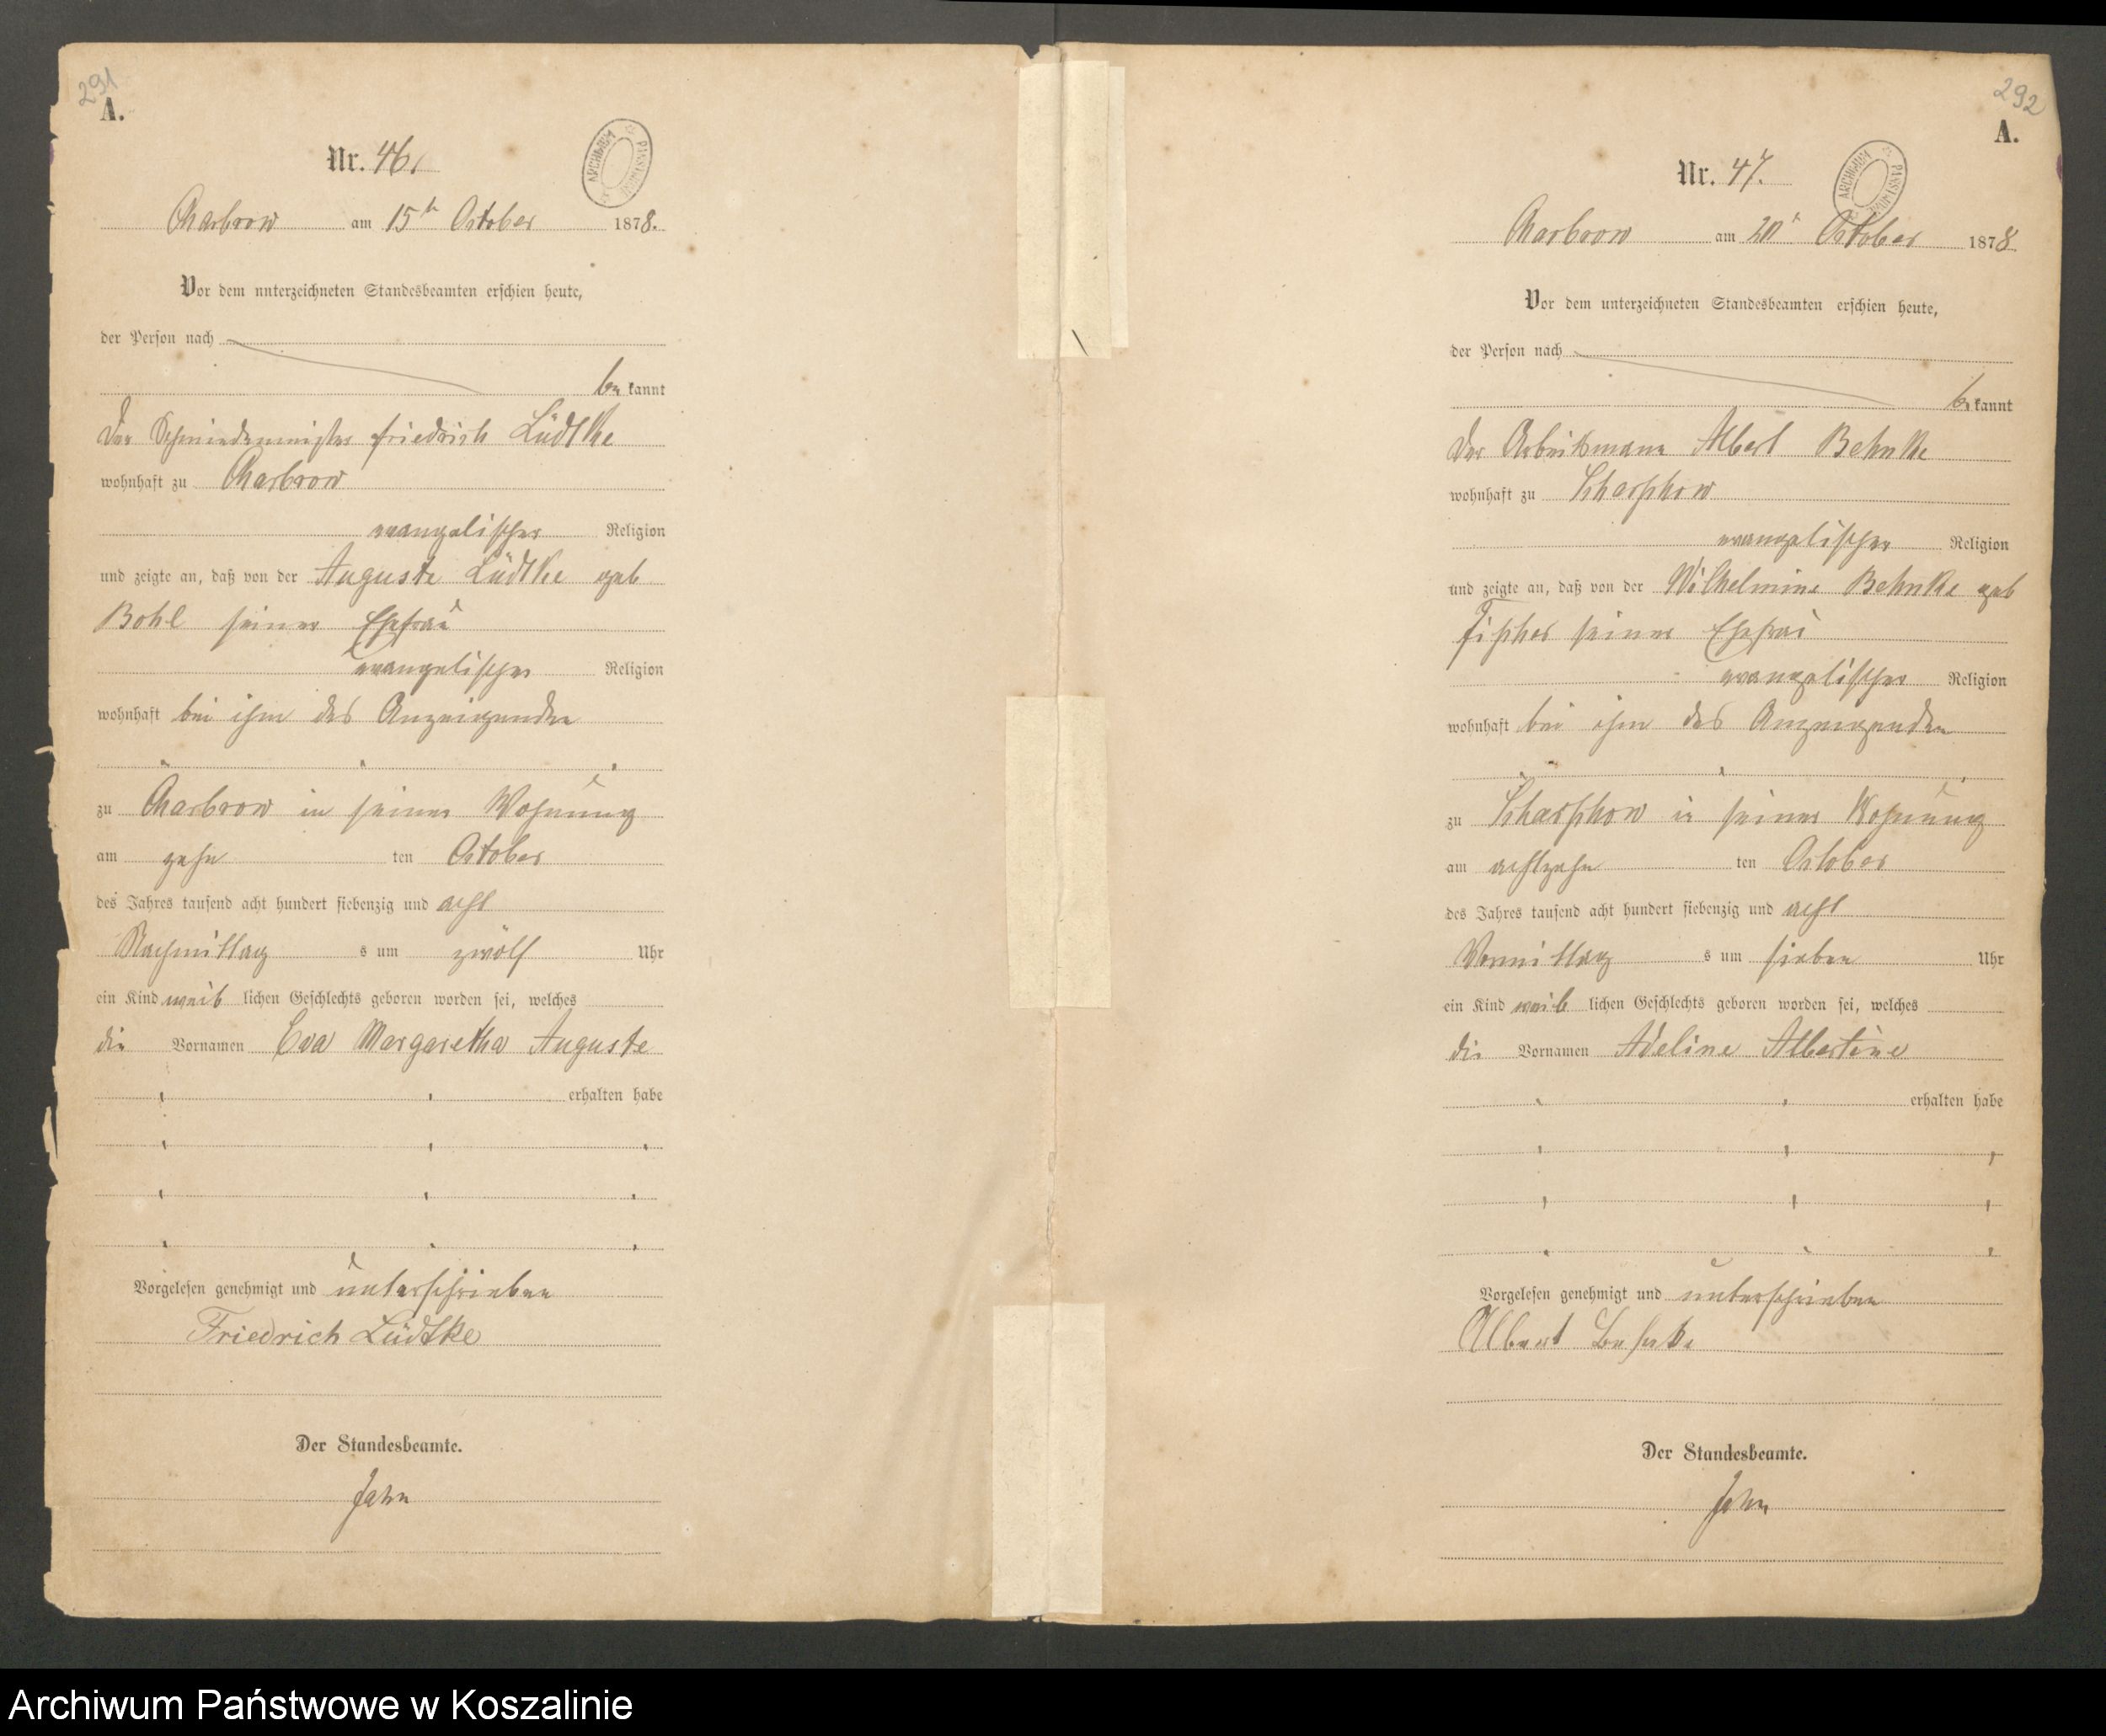 291
A.
Nr. 46.
ARCHIWUM PAŃSTWOWE
Charbrow am 15ten October 1878.
Vor dem unterzeichneten Standesbeamten erschien heute,
der Person nach
be kannt
Der Schmiedemeister Friedrich Lüdtke
wohnhaft zu Charbrow
evangelischer Religion
und zeigte an, daß von der Auguste Lüdtke geb
Bohl seiner Ehefrau
evangelischer Religion
wohnhaft bei ihm des Anzeigenden
zu Charbrow in seiner Wohnung
am zehn ten October
des Jahres tausend acht hundert siebenzig und acht
Nachmittag s um zwölf Uhr
ein Kind weib lichen Geschlechts geboren worden sei, welches
die Vornamen Eva Margaretha Auguste
erhalten habe
Vorgelesen genehmigt und unterschrieben
Friedrich Lüdtke
Der Standesbeamte.
Jahn
292
A.
Nr. 47.
ARCHIWUM PAŃSTWOWE
Charbrow am 20t October 1878
Vor dem unterzeichneten Standesbeamten erschien heute,
der Person nach
be kannt
Der Arbeitsmann Albert Behnke
wohnhaft zu Scharschow
evangelischer Religion
und zeigte an, daß von der Wilhelmine Behnke geb
Fischer seiner Ehefrau
evangelischer Religion
wohnhaft bei ihm des Anzeigenden
zu Scharschow in seiner Wohnung
am achtzehn ten October
des Jahres tausend acht hundert siebenzig und acht
Vormittag s um sieben Uhr
ein Kind weib lichen Geschlechts geboren worden sei, welches
die Vornamen Adeline Albertine
erhalten habe
Vorgelesen genehmigt und unterschrieben
Albert Behnke
Der Standesbeamte.
Jahn
Archiwum Państwowe w Koszalinie